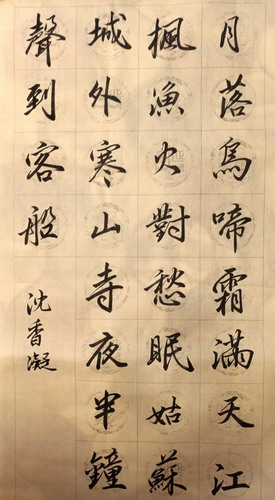 月落烏啼霜滿天江
楓漁火對愁眠姑蘇
城外寒山寺夜半鐘
聲到客船
沈香凝